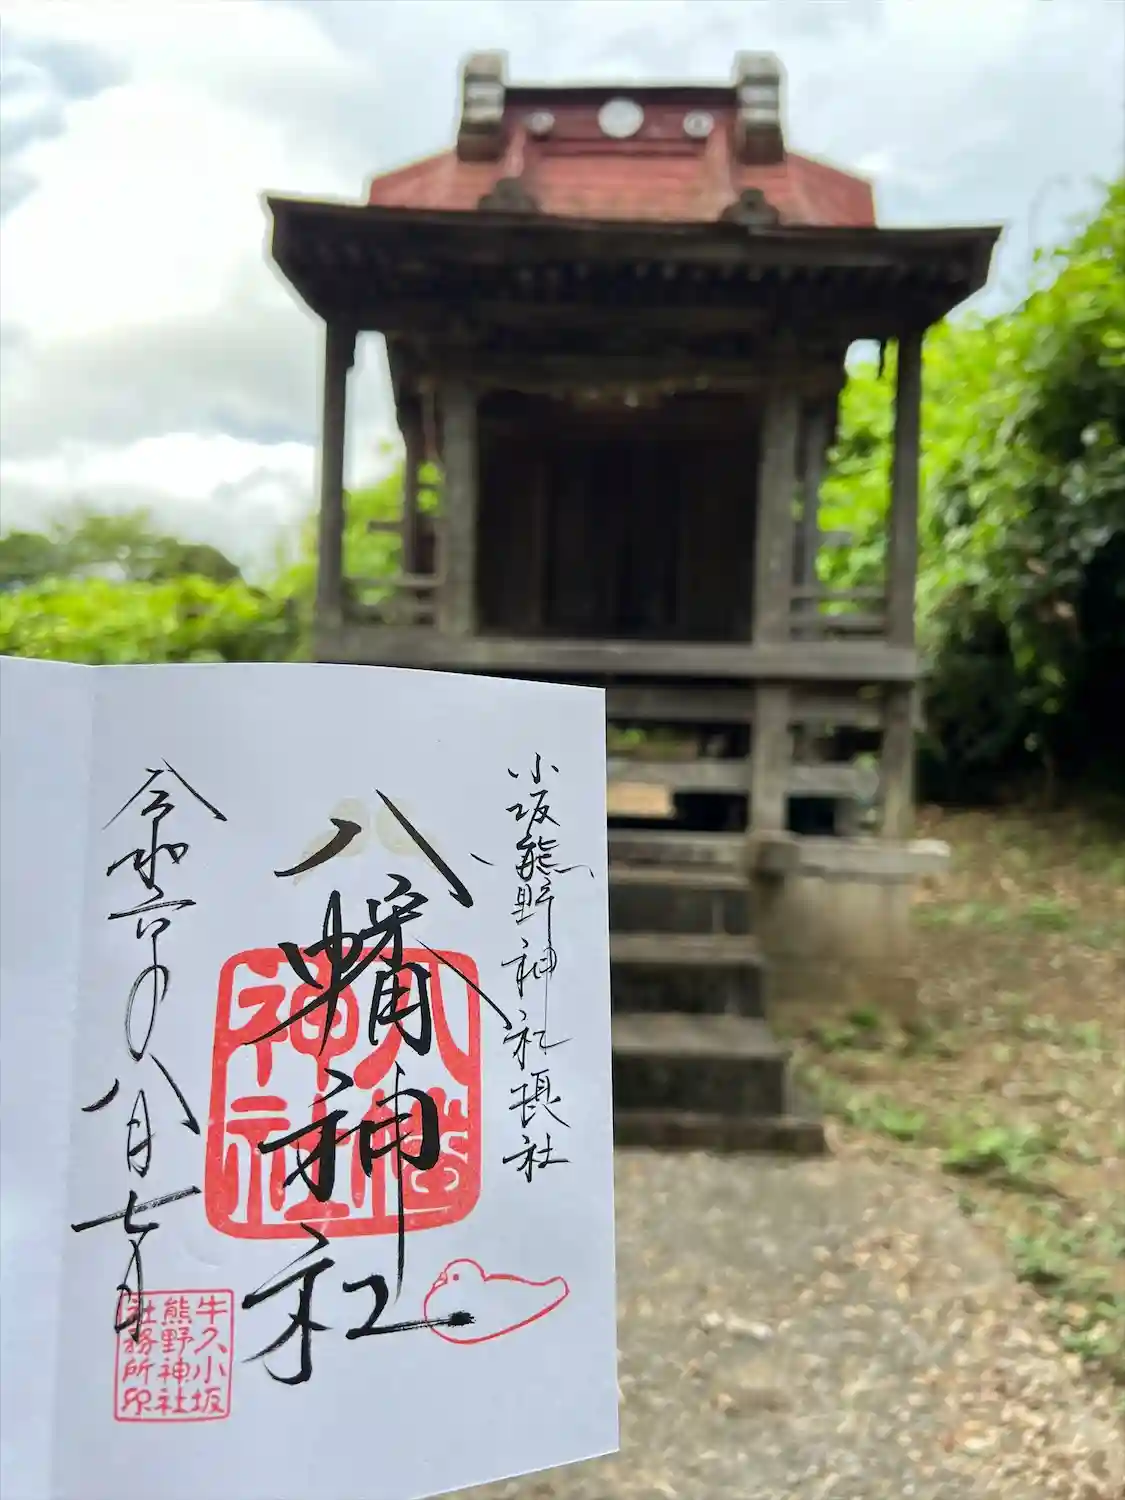 小坂熊野神社
八幡神社
八幡
神社
令和六年八月七日
牛久小坂
熊野神社
社務所印